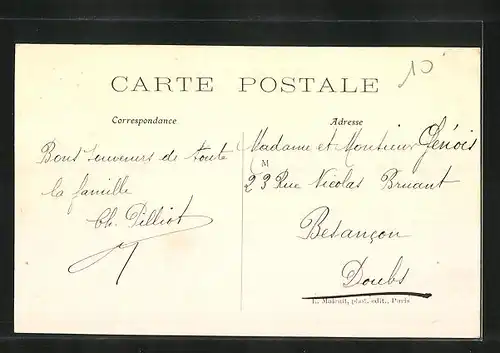 10
CARTE POSTALE
Correspondance
Bons souvenirs de toute
la famille
Ch. Pilliot
Adresse
Madame et Monsieur Génois
M
23 Rue Nicolas Bruant
Besançon
Doubs
phot. édit., Paris